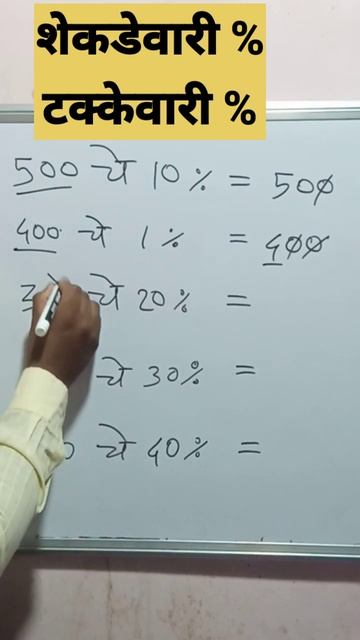 शेकडेवारी %
टक्केवारी %
500 चे 10% = 500
400 चे 1% = 400
चे 20% =
चे 30% =
चे 40% =